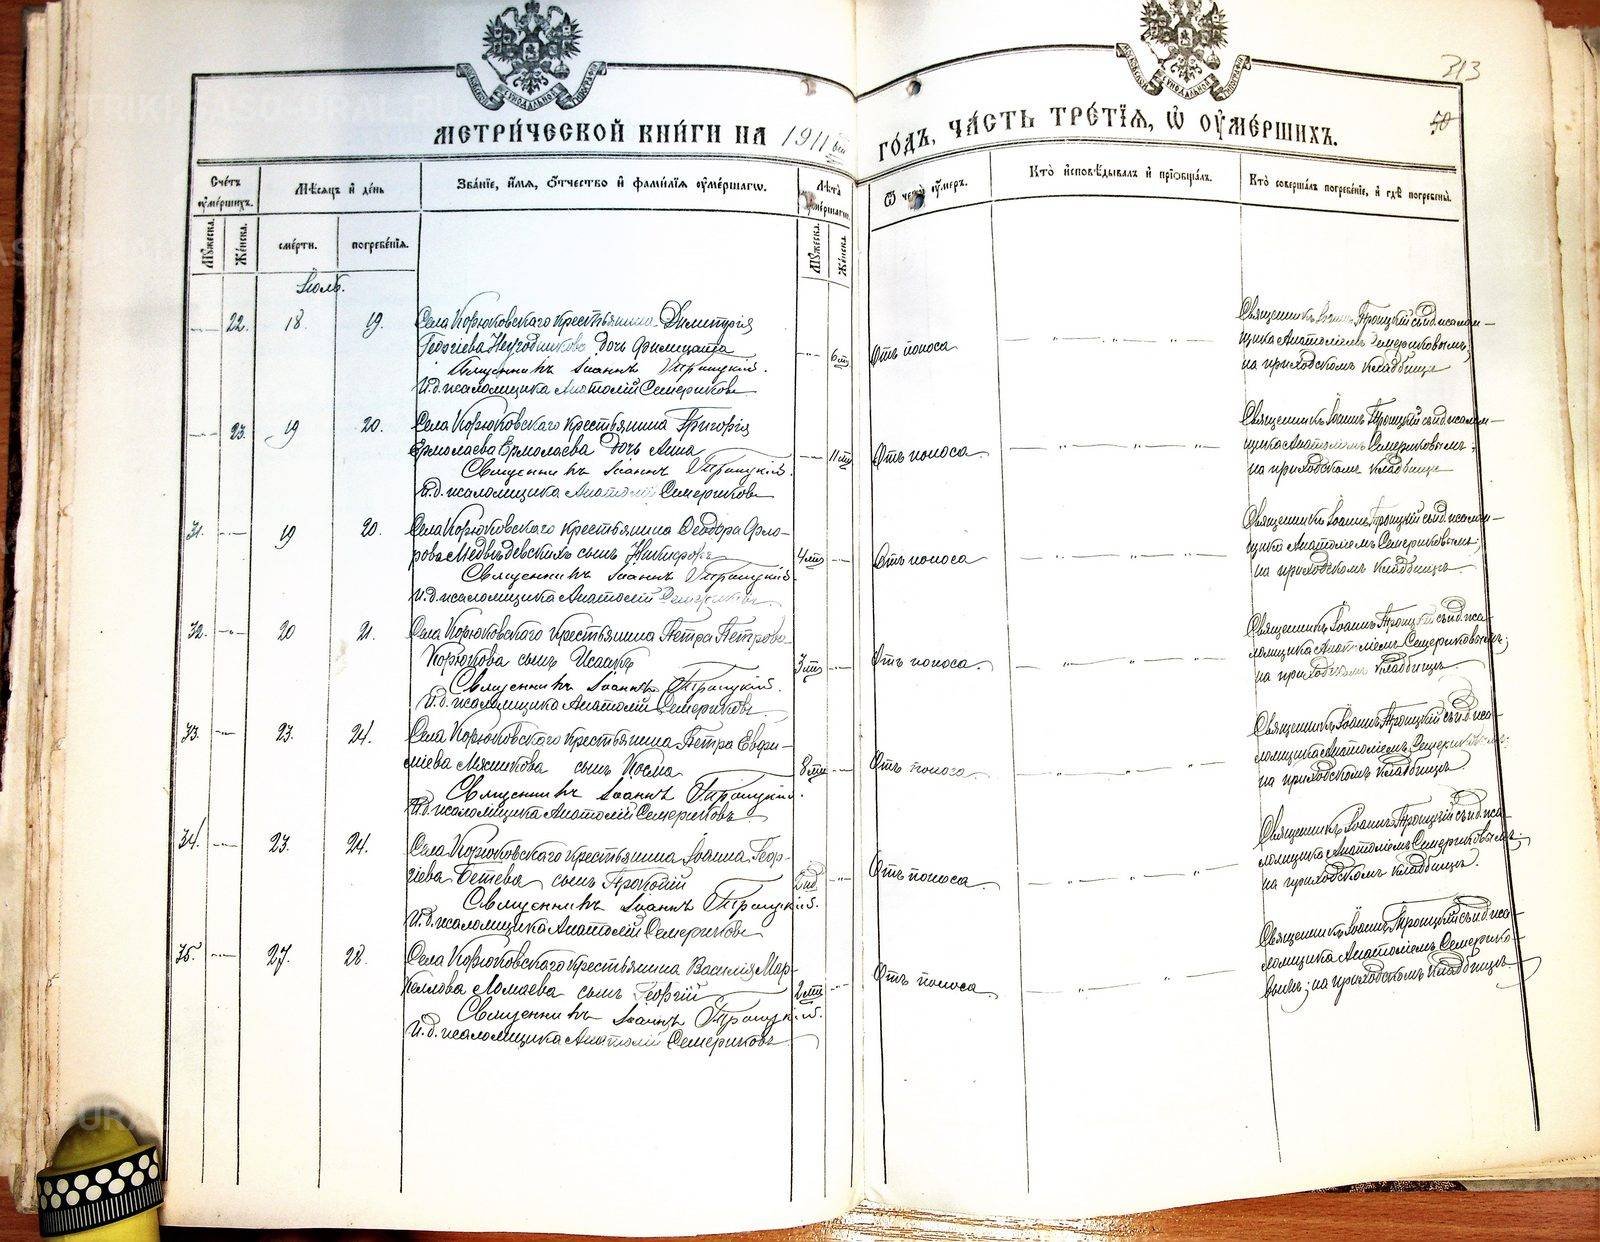 313
50
МЕТРИ́ЧЕСКОЙ КНИ́ГИ НА 1911 ГО́ДЪ, ЧА́СТЬ ТРЕ́ТІѦ, Ѡ҆ ОУ҆МЕ́РШИХЪ.
Сче́тъ оу҆ме́ршихъ.
Мѣ́сѧцъ и҆ де́нь
Зва́нїе, и҆́мѧ, ѻ҆́тчество и҆ фами́лїѧ оу҆ме́ршагѡ.
Лѣ́та оу҆ме́ршагѡ.
Ѿ чегѡ̀ оу҆́меръ.
Кто̀ и҆сповѣ́дывалъ и҆ прїѡбща́лъ.
Кто̀ соверша́лъ погребе́нїе, и҆ гдѣ̀ погребены̀.
Мꙋ́жеска.
Же́нска.
сме́рти.
погребе́нїѧ.
Мꙋ́жеска.
Же́нска.
Іюль.
22. 18. 19. Села Корюковскаго крестьянина Димитрія
Георгіева Неугодникова дочь Филицата 6 Отъ поноса
Священникъ Іоаннъ Троицкій.
И.д. псаломщика Анатолій Семериковъ
Священникъ Іоаннъ Троицкій съ и.д. псалом-
щика Анатоліемъ Семериковымъ;
на приходскомъ кладбище
23. 19 20. Села Корюковскаго крестьянина Григорія
Ермолаева Ермолаева дочь Анна 11 Отъ поноса
Священникъ Іоаннъ Троицкій.
И.д. псаломщика Анатолій Семериковъ
Священникъ Іоаннъ Троицкій съ и.д. псалом-
щика Анатоліемъ Семериковымъ;
на приходскомъ кладбище
31. 19 20. Села Корюковскаго крестьянина Ѳеодора Фло-
рова Медвѣдевскихъ сынъ Никифоръ 4 Отъ поноса
Священникъ Іоаннъ Троицкій
И.д. псаломщика Анатолій Семериковъ
Священникъ Іоаннъ Троицкій съ и.д. псалом-
щика Анатоліемъ Семериковымъ;
на приходскомъ кладбищѣ
32. 20 21. Села Корюковскаго крестьянина Петра Петрова
Корюкова сынъ Исаакъ 3 Отъ поноса.
Священникъ Іоаннъ Троицкій.
И.д. псаломщика Анатолій Семериковъ
Священникъ Іоаннъ Троицкій съ и.д. пса-
ломщика Анатоліемъ Семериковымъ;
на приходскомъ кладбищѣ
33. 23. 24. Села Корюковскаго крестьянина Петра Евфи-
міева Мясникова сынъ Косма 8 Отъ поноса
Священникъ Іоаннъ Троицкій.
И.д. псаломщика Анатолій Семериковъ
Священникъ Іоаннъ Троицкій съ и.д. пса-
ломщика Анатоліемъ Семериковымъ
на приходскомъ кладбищѣ.
34. 23. 24. Села Корюковскаго крестьянина Іоанна Геор-
гіева Бетева сынъ Прокопій 2 нд Отъ поноса.
Священникъ Іоаннъ Троицкій.
И.д. псаломщика Анатолій Семериковъ
Священникъ Іоаннъ Троицкій съ и.д. пса-
ломщика Анатоліемъ Семериковымъ;
на приходскомъ кладбищѣ.
35. 27. 28. Села Корюковскаго крестьянина Василія Мар-
келлова Ломаева сынъ Георгій 2 Отъ поноса.
Священникъ Іоаннъ Троицкій.
И.д. псаломщика Анатолій Семериковъ
Священникъ Іоаннъ Троицкій съ и.д. пса-
ломщика Анатоліемъ Семерико-
вымъ; на приходскомъ кладбищѣ.